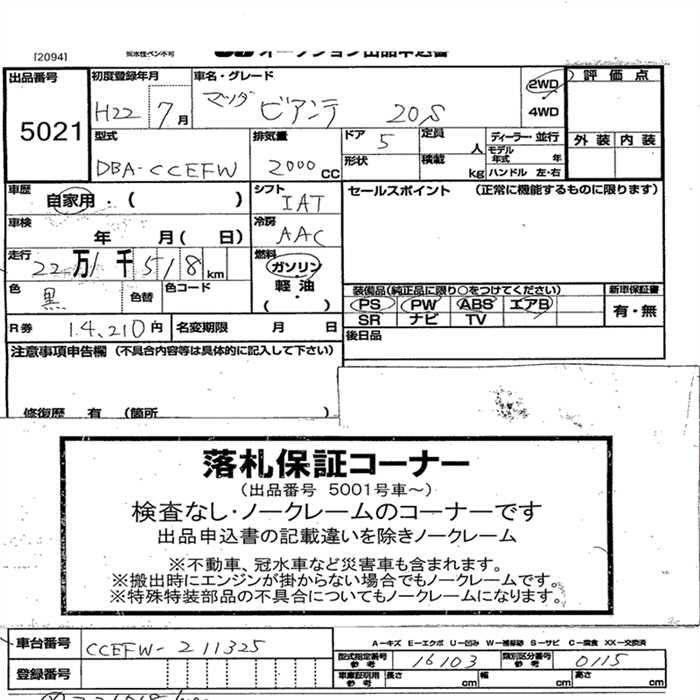 [2094] 耐水性ペン不可 オークション出品申込書
出品番号 5021
初度登録年月 H22年 7月
車名・グレード マツダ ビアンテ 20S
2WD・4WD
評価点
外装 内装
型式 DBA-CCEFW
排気量 2000 CC
ドア 5
形状
定員 人
積載 kg
ディーラー・並行
モデル年式 年
ハンドル 左・右
車歴 自家用・( )
シフト IAT
セールスポイント (正常に機能するものに限ります)
車検 年 月( 日)
冷房 AAC
走行 22万1千518km
燃料 ガソリン・軽油・( )
色 黒
色替
色コード
装備品(純正品に限り○をつけてください)
PS PW ABS エアB
SR ナビ TV
新車保証書 有・無
R券 14,210円
名変期限 月 日
後日品
注意事項申告欄 (不具合内容等は具体的に記入して下さい)
修復歴 有 (箇所 )
落札保証コーナー
(出品番号 5001号車〜)
検査なし・ノークレームのコーナーです
出品申込書の記載違いを除きノークレーム
※不動車、冠水車など災害車も含まれます。
※搬出時にエンジンが掛からない場合でもノークレームです。
※特殊特装部品の不具合についてもノークレームになります。
車台番号 CCEFW-211325
A-キズ E-エクボ U-凹み W-補修跡 S-サビ C-腐食 XX-交換済
型式指定番号 参考 16103
類別区分番号 参考 0115
登録番号
車庫証明用 参考 長さ cm 幅 cm 高さ cm